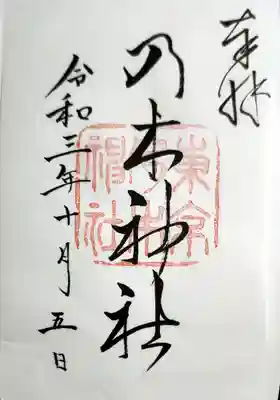 奉拝
乃木神社
令和三年十月五日